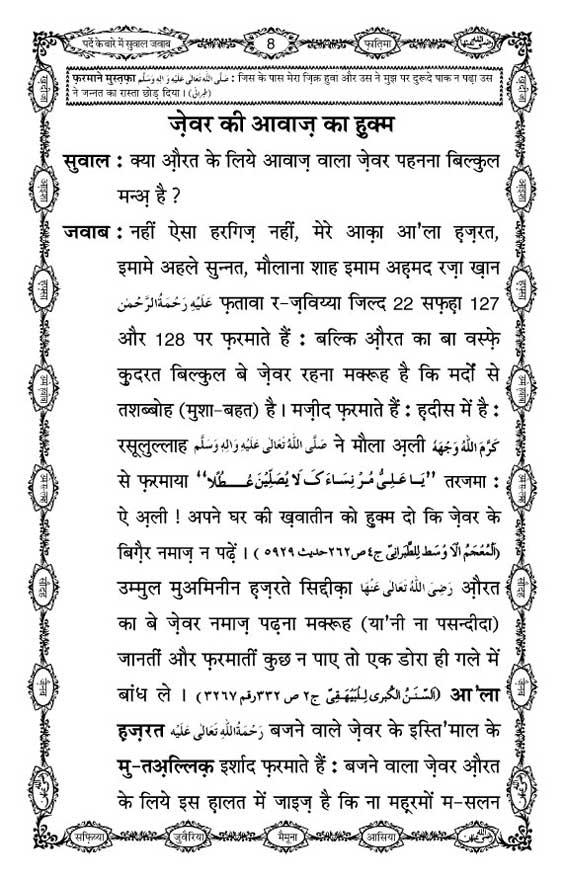 पर्दे के बारे में सुवाल जवाब
8
फ़ातिमा
फ़रमाने मुस्तफ़ा صَلَّى اللهُ تَعَالٰى عَلَيْهِ وَاٰلِهٖ وَسَلَّم : जिस के पास मेरा ज़िक्र हुवा और उस ने मुझ पर दुरूदे पाक न पढ़ा उस
ने जन्नत का रास्ता छोड़ दिया । (طبرانی)
ज़ेवर की आवाज़ का हुक्म
सुवाल : क्या औ़रत के लिये आवाज़ वाला ज़ेवर पहनना बिल्कुल
मन्अ़ है ?
जवाब : नहीं ऐसा हरगिज़ नहीं, मेरे आक़ा आ'ला ह़ज़रत,
इमामे अहले सुन्नत, मौलाना शाह इमाम अह़मद रज़ा ख़ान
عَلَيْهِ رَحْمَةُ الرَّحْمٰن फ़तावा र-ज़विय्या जिल्द 22 सफ़ह़ा 127
और 128 पर फ़रमाते हैं : बल्कि औ़रत का बा वस्फ़े
क़ुदरत बिल्कुल बे ज़ेवर रहना मक्रूह है कि मर्दों से
तशब्बोह (मुशा-बहत) है । मज़ीद फ़रमाते हैं : ह़दीस में है :
रसूलुल्लाह صَلَّى اللهُ تَعَالٰى عَلَيْهِ وَاٰلِهٖ وَسَلَّم ने मौला अ़ली كَرَّمَ اللهُ وَجْهَهٗ
से फ़रमाया ”يَا عَلِىُّ مُرْ نِسَاءَكَ لَا يُصَلِّيْنَ عُطُلًا“ तरजमा :
ऐ अ़ली ! अपने घर की ख़वातीन को हुक्म दो कि ज़ेवर के
बिग़ैर नमाज़ न पढ़ें । (اَلْمُعْجَمُ الْاَوْسَط لِلطَّبَرَانِیّ ج٤ ص٢٦٢ حدیث ٥٩٢٩)
उम्मुल मुअमिनीन ह़ज़रते सिद्दीक़ा رَضِىَ اللهُ تَعَالٰى عَنْهَا औ़रत
का बे ज़ेवर नमाज़ पढ़ना मक्रूह (या'नी ना पसन्दीदा)
जानतीं और फ़रमातीं कुछ न पाए तो एक डोरा ही गले में
बांध ले । (اَلسُّنَنُ الْكُبْرٰى لِلْبَيْهَقِیّ ج٢ ص ٣٣٢ رقم ٣٢٦٧) आ'ला
ह़ज़रत رَحْمَةُ اللهِ تَعَالٰى عَلَيْه बजने वाले ज़ेवर के इस्ति'माल के
मु-तअ़ल्लिक़ इर्शाद फ़रमाते हैं : बजने वाला ज़ेवर औ़रत
के लिये इस ह़ालत में जाइज़ है कि ना मह़रमों म-सलन
सफ़िय्या
जुवैरिया
मैमूना
आसिया